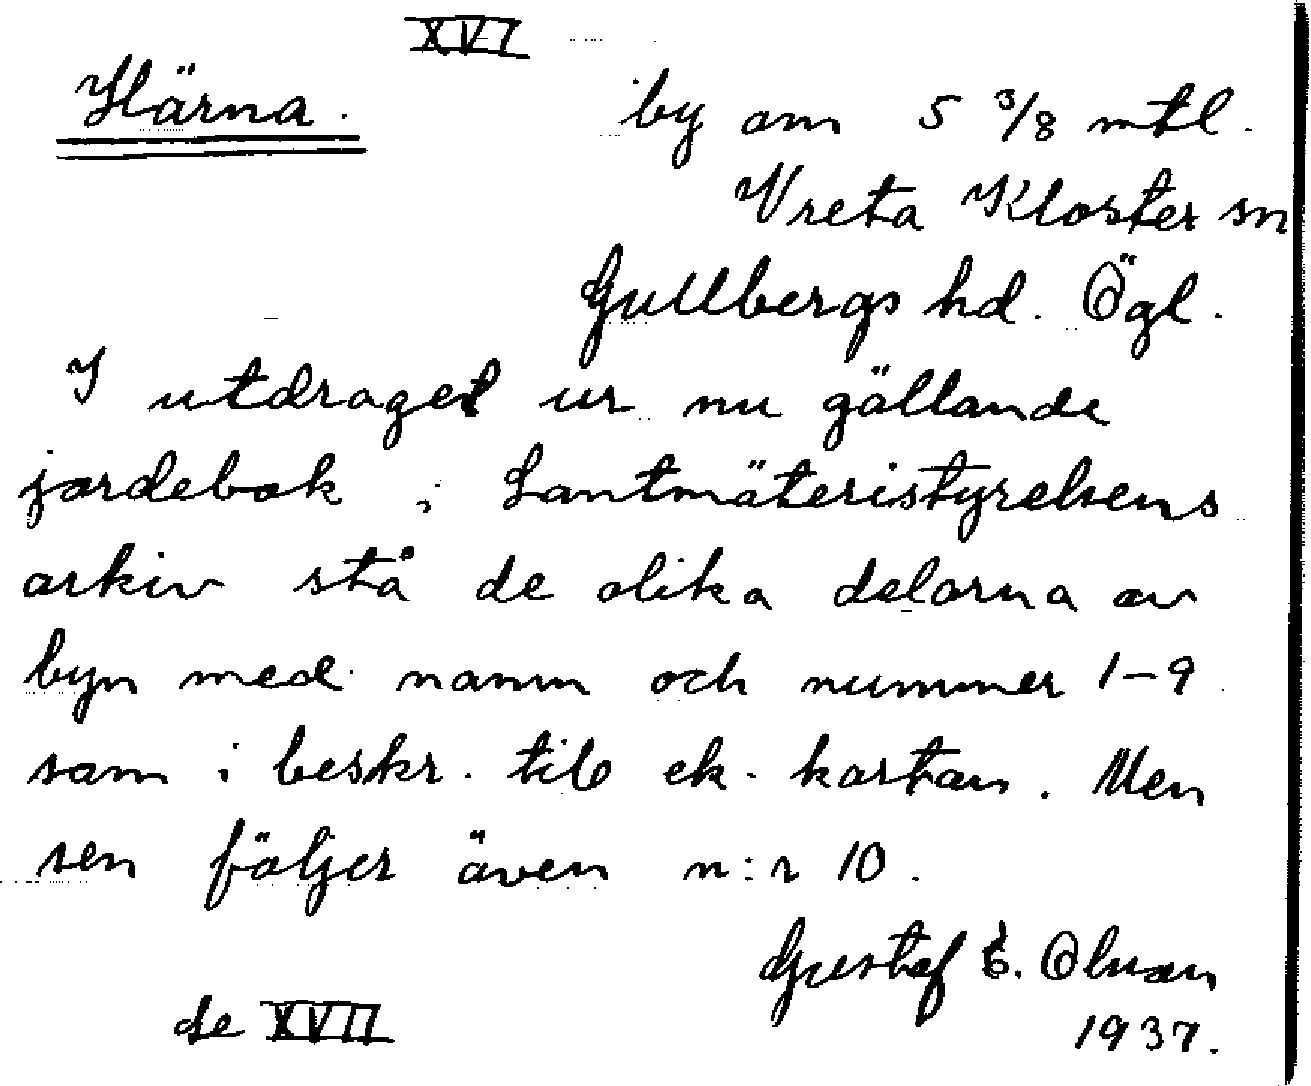 XVI
Härna. by om 5 3/8 mtl.
Vreta Kloster sn
Gullbergs hd. Ögl.
I utdraget ur nu gällande
jordebok i Lantmäteristyrelsens
arkiv stå de olika delarna av
byn med namn och nummer 1-9
som i beskr. till ek. kartan. Men
sen följer även n:r 10.
Gustaf E. Olson
1937.
se XVII